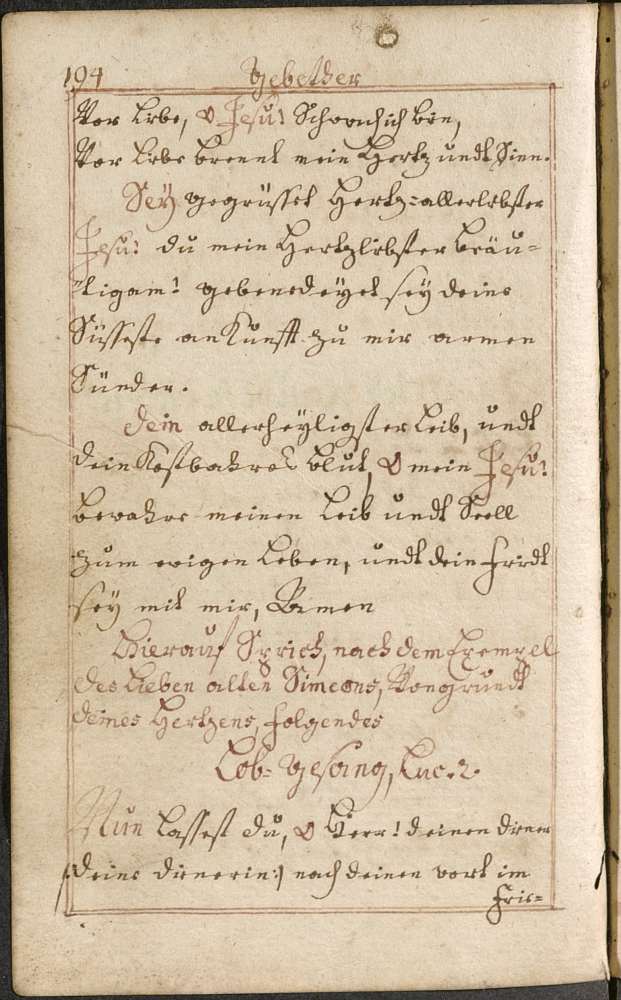 194 Gebether
Vor Liebe, O Jesu! Schwach ich bin,
Vor Liebe brennt mein Hertz undt Sinn.
Sey gegrüsset Hertz=allerliebster
Jesu! du mein Hertzliebster Bräu=
tigam! gebenedeyet sey deine
Süsseste ankunfft zu mir armen
Sünder.
Dein allerheyligster Leib, undt
dein Kostbahres Blut, O mein Jesu!
bewahre meinen Leib undt Seell
zum ewigen Leben, undt dein Fridt
sey mit mir, Amen
Hierauf Sprich, nach dem Exempel
des Lieben alten Simeons, Von grundt
deines Hertzens, folgendes
Lob= gesang, Luc. 2.
Nun Lassest du, O Herr! deinen diener
/:deine dienerin:/ nach deinen wort im
Frie=